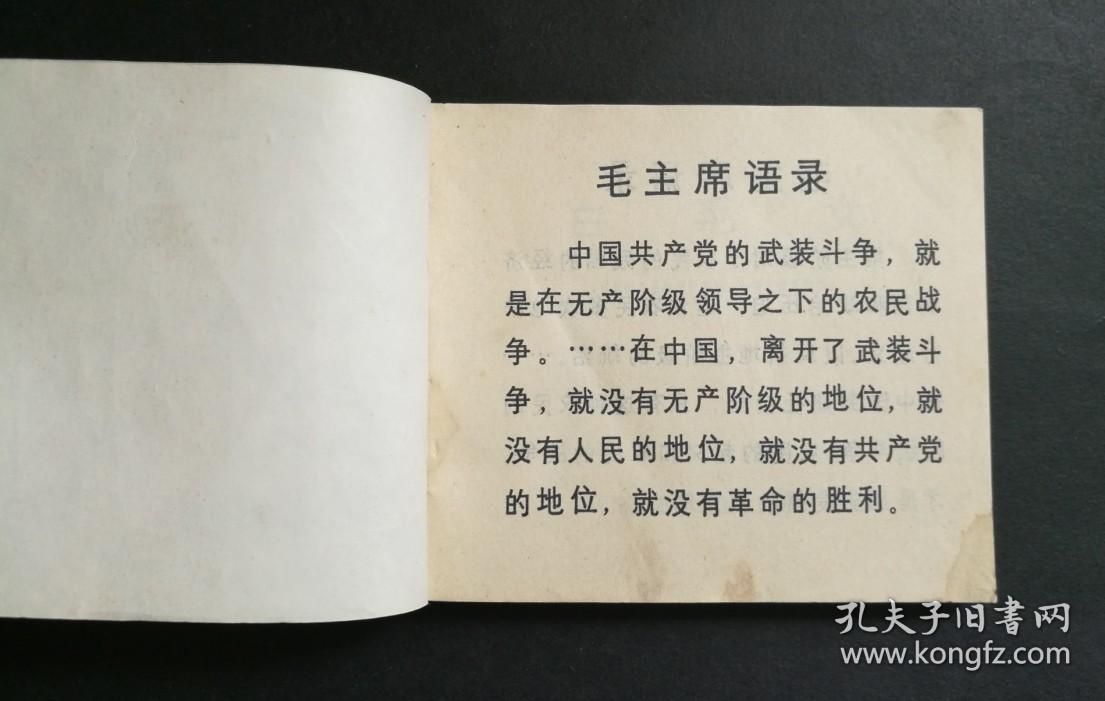 毛主席语录
中国共产党的武装斗争，就
是在无产阶级领导之下的农民战
争。……在中国，离开了武装斗
争，就没有无产阶级的地位，就
没有人民的地位，就没有共产党
的地位，就没有革命的胜利。
孔夫子旧書网
www.kongfz.com